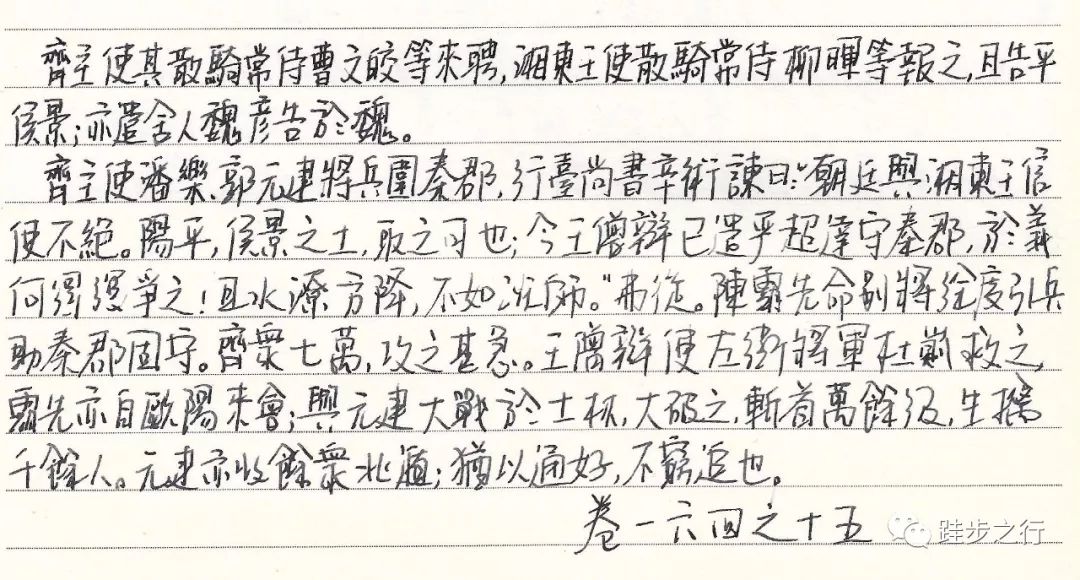 齊主使其散騎常侍曹文皎等來聘,湘東王使散騎常侍柳暉等報之,且告平
侯景;亦遣舍人魏彥告於魏。
齊主使潘樂、郭元建將兵圍秦郡,行臺尚書辛術諫曰:“朝廷與湘東王信
使不絕。陽平,侯景之土,取之可也;今王僧辯已遣嚴超達守秦郡,於義
何得復爭之!且水潦方降,不如班師。”弗從。陳霸先命別將徐度引兵
助秦郡固守。齊衆七萬,攻之甚急。王僧辯使左衛將軍杜崱救之,
霸先亦自歐陽來會;與元建大戰於士林,大破之,斬首萬餘級,生擒
千餘人。元建亦收餘衆北遁;猶以通好,不窮追也。
卷一六四之十五
跬步之行